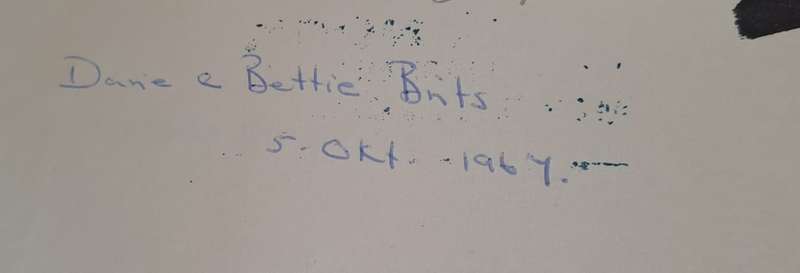 Danie e Bettie Brits
5. Okt. 1967.